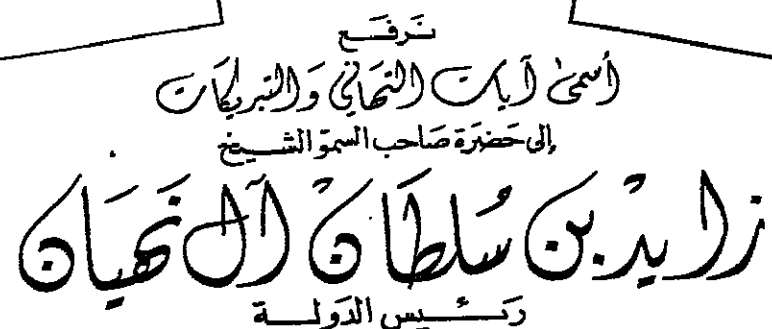 نَرفَع
أسمىٰ آيات التهاني وَالتبريكات
إلى حَضرَة صَاحب السموّ الشيخ
زايد بن سُلطان آل نَهيان
رئيس الدَولة